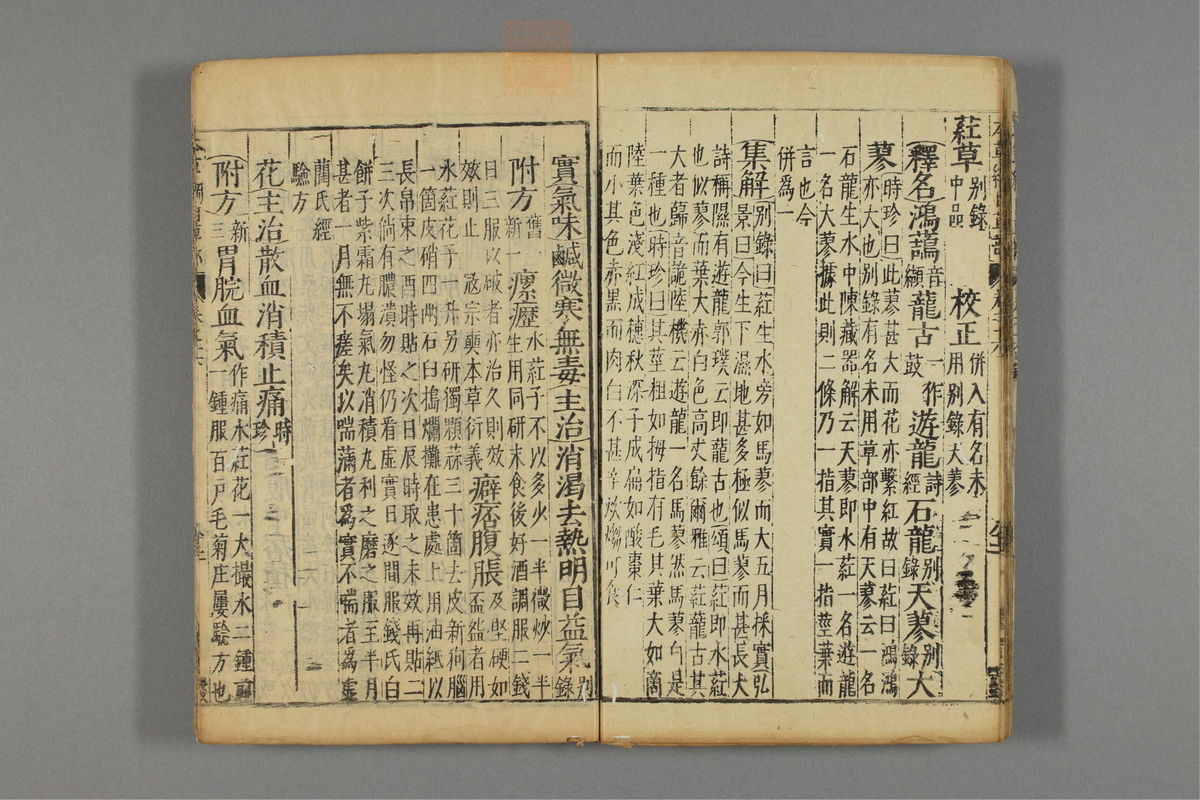 葒草別錄中品　校正併入有名未用別錄天蓼
釋名鴻䕬音纈蘢古一作鼓遊龍詩經石龍別錄天蓼別錄大
蓼時珍曰此蓼甚大而花亦繁紅故曰葒曰鴻鴻
亦大也別錄有名未用草部中有天蓼云一名
石龍生水中陳藏器解云天蓼即水葒一名遊龍
一名大蓼據此則二條乃一指其實一指莖葉而
言也今
併爲一
集解別錄曰葒生水旁如馬蓼而大五月採實弘
景曰今生下濕地甚多極似馬蓼而甚長大
詩稱隰有遊龍郭璞云即蘢古也頌曰葒即水葒
也似蓼而葉大赤白色高丈餘爾雅云葒蘢古其
大者蘬音詭陸機云遊龍一名馬蓼然馬蓼自是
一種也時珍曰其莖粗如拇指有毛其葉大如商
陸葉色淺紅成穗秋深子成扁如酸棗仁
而小其色赤黑而肉白不甚辛炊煼可食
實氣味鹹微寒無毒主治消渴去熱明目益氣別錄
附方舊一新一瘰癧水葒子不以多少一半微炒一半
生用同研末食後好酒調服二錢
日三服以破者亦治久則效
效則止　寇宗奭本草衍義癖痞腹脹及堅硬如盃盌者用
水葒花子一升另研獨顆蒜三十箇去皮新狗腦
一箇皮硝四兩石臼搗爛攤在患處上用油紙以
長帛束之酉時貼之次日辰時取之未效再貼二
三次倘有膿潰勿怪仍看虛實日逐間服錢氏白
餅子紫霜丸塌氣丸消積丸利之磨之服至半月
甚者一月無不瘥矣以喘滿者爲實不喘者爲虛
藺氏經
驗方
花主治散血消積止痛時珍
附方新三胃脘血氣作痛水葒花一大撮水二鍾煎
一鍾服百戶毛菊庄屢驗方也